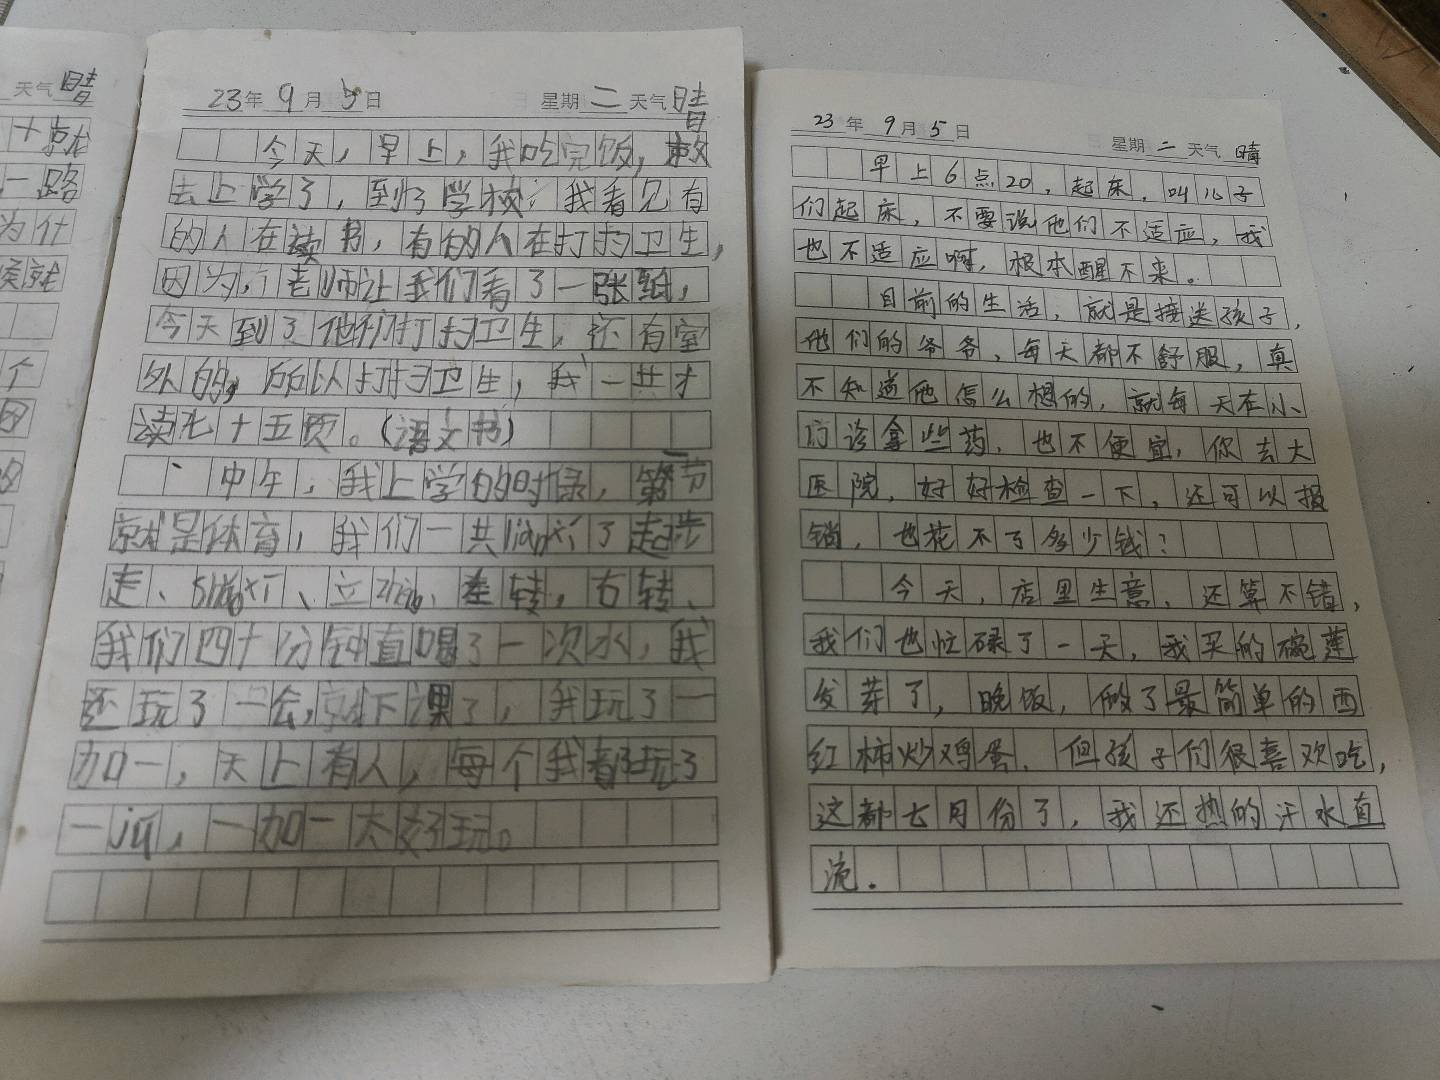 天气晴
十就
一路
为什
候就
个
23年9月5日 星期二 天气晴
今天,早上,我吃完饭,就
去上学了,到了学校:我看见有
的人在读书,有的人在打扫卫生,
因为,老师让我们看了一张纸,
今天到了他们打扫卫生,还有室
外的,所以打扫卫生,我一共才
读七十五页。(语文书)
中午,我上学的时候,第一节
就是体育,我们一共了起步
走、立、左转,右转、
我们四十分钟直喝了一次水,我
还玩了一会,就下课了,我玩了一
加一,天上有人,每个我都玩了
一,一加一太好玩。
23年9月5日 星期二 天气晴
早上6点20,起床,叫儿子
们起床,不要说他们不适应,我
也不适应啊,根本醒不来。
目前的生活,就是接送孩子,
他们的爷爷,每天都不舒服,真
不知道他怎么想的,就每天在小
诊拿些药,也不便宜,你去大
医院,好好检查一下,还可以报
销,也花不了多少钱?
今天,店里生意,还算不错,
我们也忙碌了一天,我买的碗莲
发芽了,晚饭,做了最简单的西
红柿炒鸡蛋,但孩子们很喜欢吃,
这都七月份了,我还热的汗水直
流.